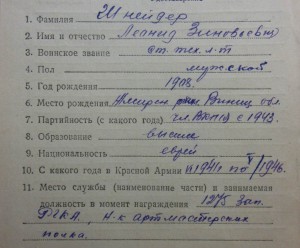 1. Фамилия Шнейдер
2. Имя и отчество Леонид Зиновьевич
3. Воинское звание ст. тех. л-т
4. Пол мужской
5. Год рождения 1908.
6. Место рождения Винниц. обл.
7. Партийность (с какого года) чл. ВКП(б) с 1943.
8. Образование высшее
9. Национальность еврей
10. С какого года в Красной Армии 1941 по 1946.
11. Место службы (наименование части) и занимаемая
должность в момент награждения 1275 зап.
н-к артмастерских
полка.